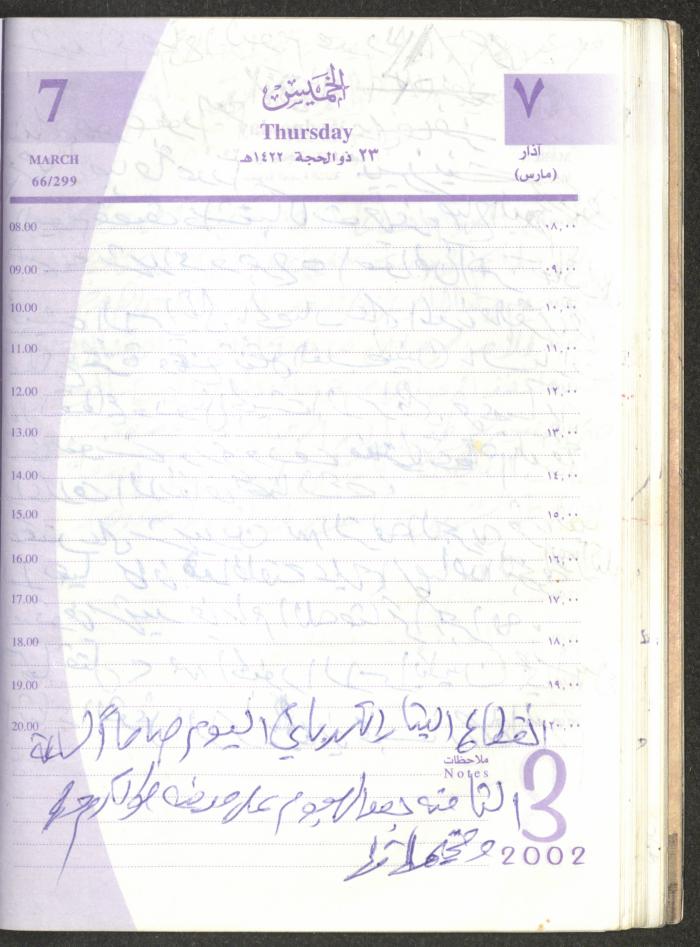 7
MARCH
66/299
الخميس
Thursday
٢٣ ذو الحجة ١٤٢٢هـ
٧
آذار
(مارس)
08.00 ٠٨,٠٠
09.00 ٠٩,٠٠
10.00 ١٠,٠٠
11.00 ١١,٠٠
12.00 ١٢,٠٠
13.00 ١٣,٠٠
14.00 ١٤,٠٠
15.00 ١٥,٠٠
16.00 ١٦,٠٠
17.00 ١٧,٠٠
18.00 ١٨,٠٠
19.00 ١٩,٠٠
انقطاع التيار الكهربائي اليوم صباحاً الساعة
20.00 ٢٠,٠٠
ملاحظات
Notes
الثامنه بعد الهجوم على
3
2002